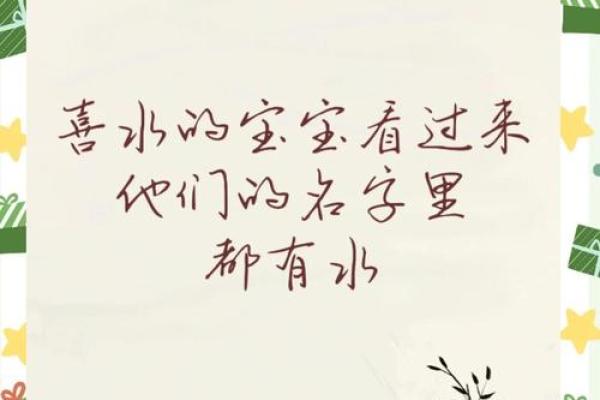 喜水的宝宝看过来
他们的名字里
都有水